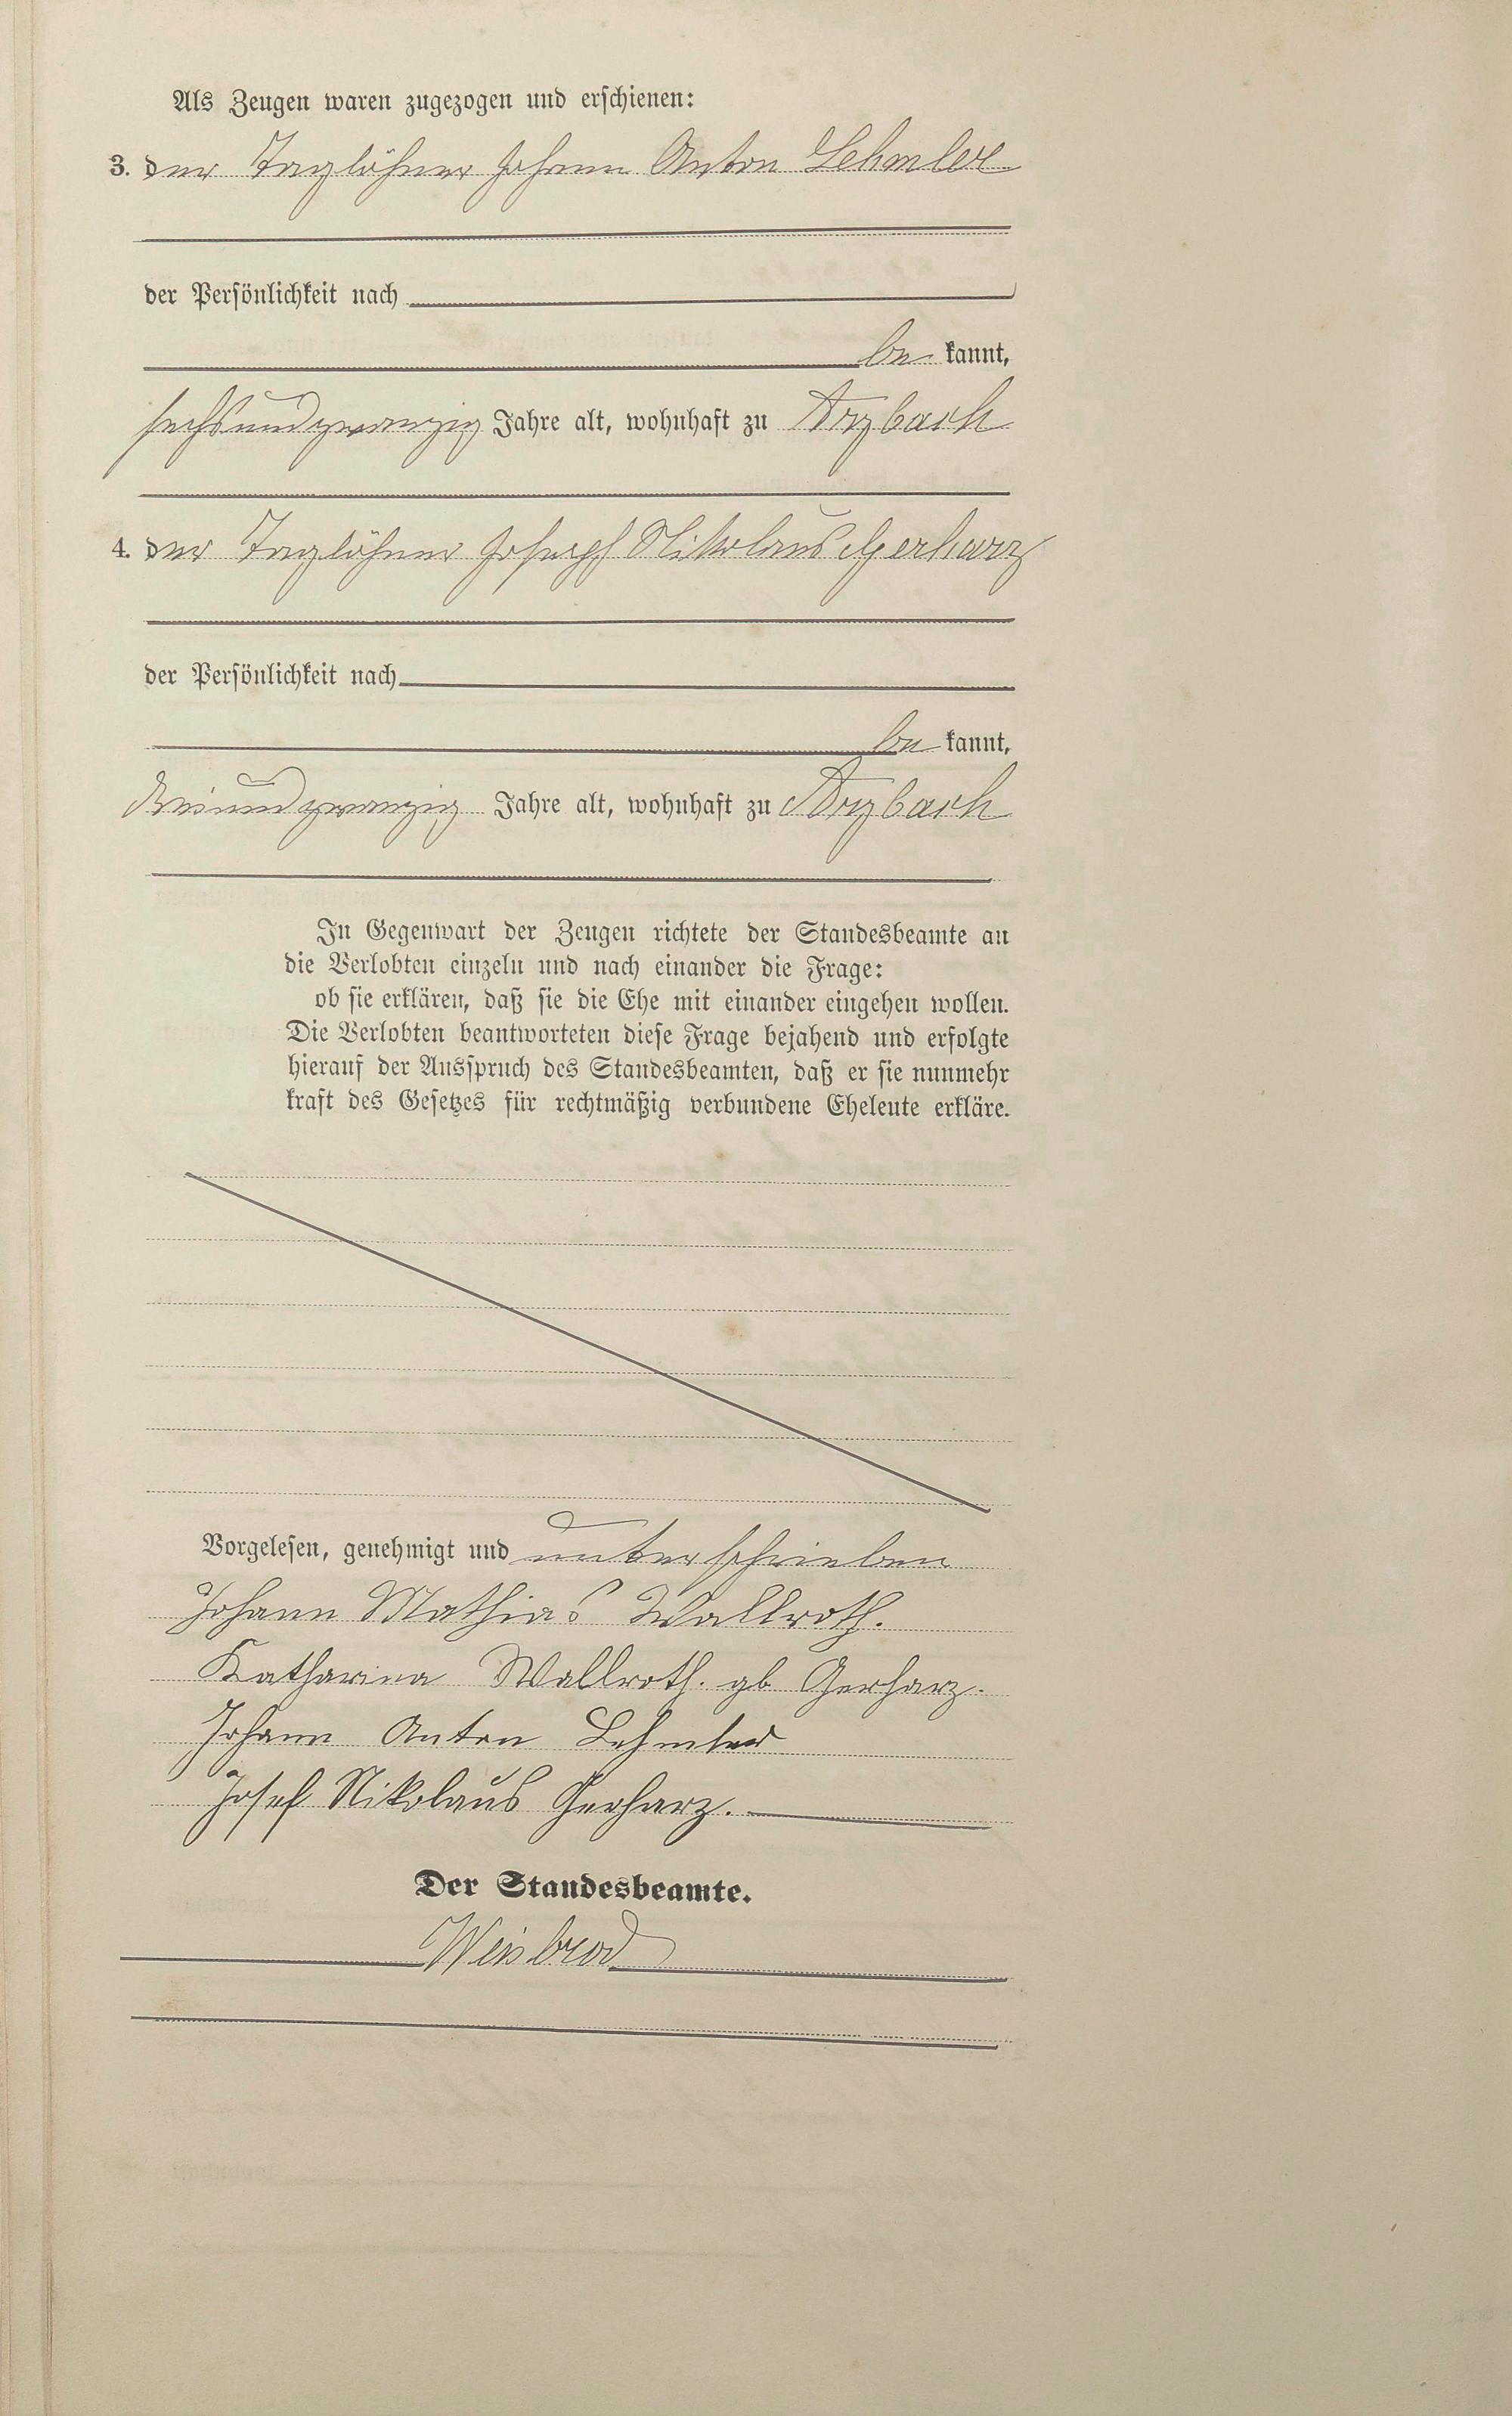 Als Zeugen waren zugezogen und erschienen:
3. der Taglöhner Johann Anton Lehmler
der Persönlichkeit nach
be kannt,
sechsundzwanzig Jahre alt, wohnhaft zu Arzbach
4. der Taglöhner Joseph Nikolaus Gerharz
der Persönlichkeit nach
be kannt,
dreiundzwanzig Jahre alt, wohnhaft zu Arzbach
In Gegenwart der Zeugen richtete der Standesbeamte an
die Verlobten einzeln und nach einander die Frage:
ob sie erklären, daß sie die Ehe mit einander eingehen wollen.
Die Verlobten beantworteten diese Frage bejahend und erfolgte
hierauf der Ausspruch des Standesbeamten, daß er sie nunmehr
kraft des Gesetzes für rechtmäßig verbundene Eheleute erkläre.
Vorgelesen, genehmigt und unterschrieben
Johann Mathias Wallroth.
Katharina Wallroth. gb Gerharz.
Johann Anton Lehmler
Josef Nikolaus Gerharz.
Der Standesbeamte.
Weisbrod